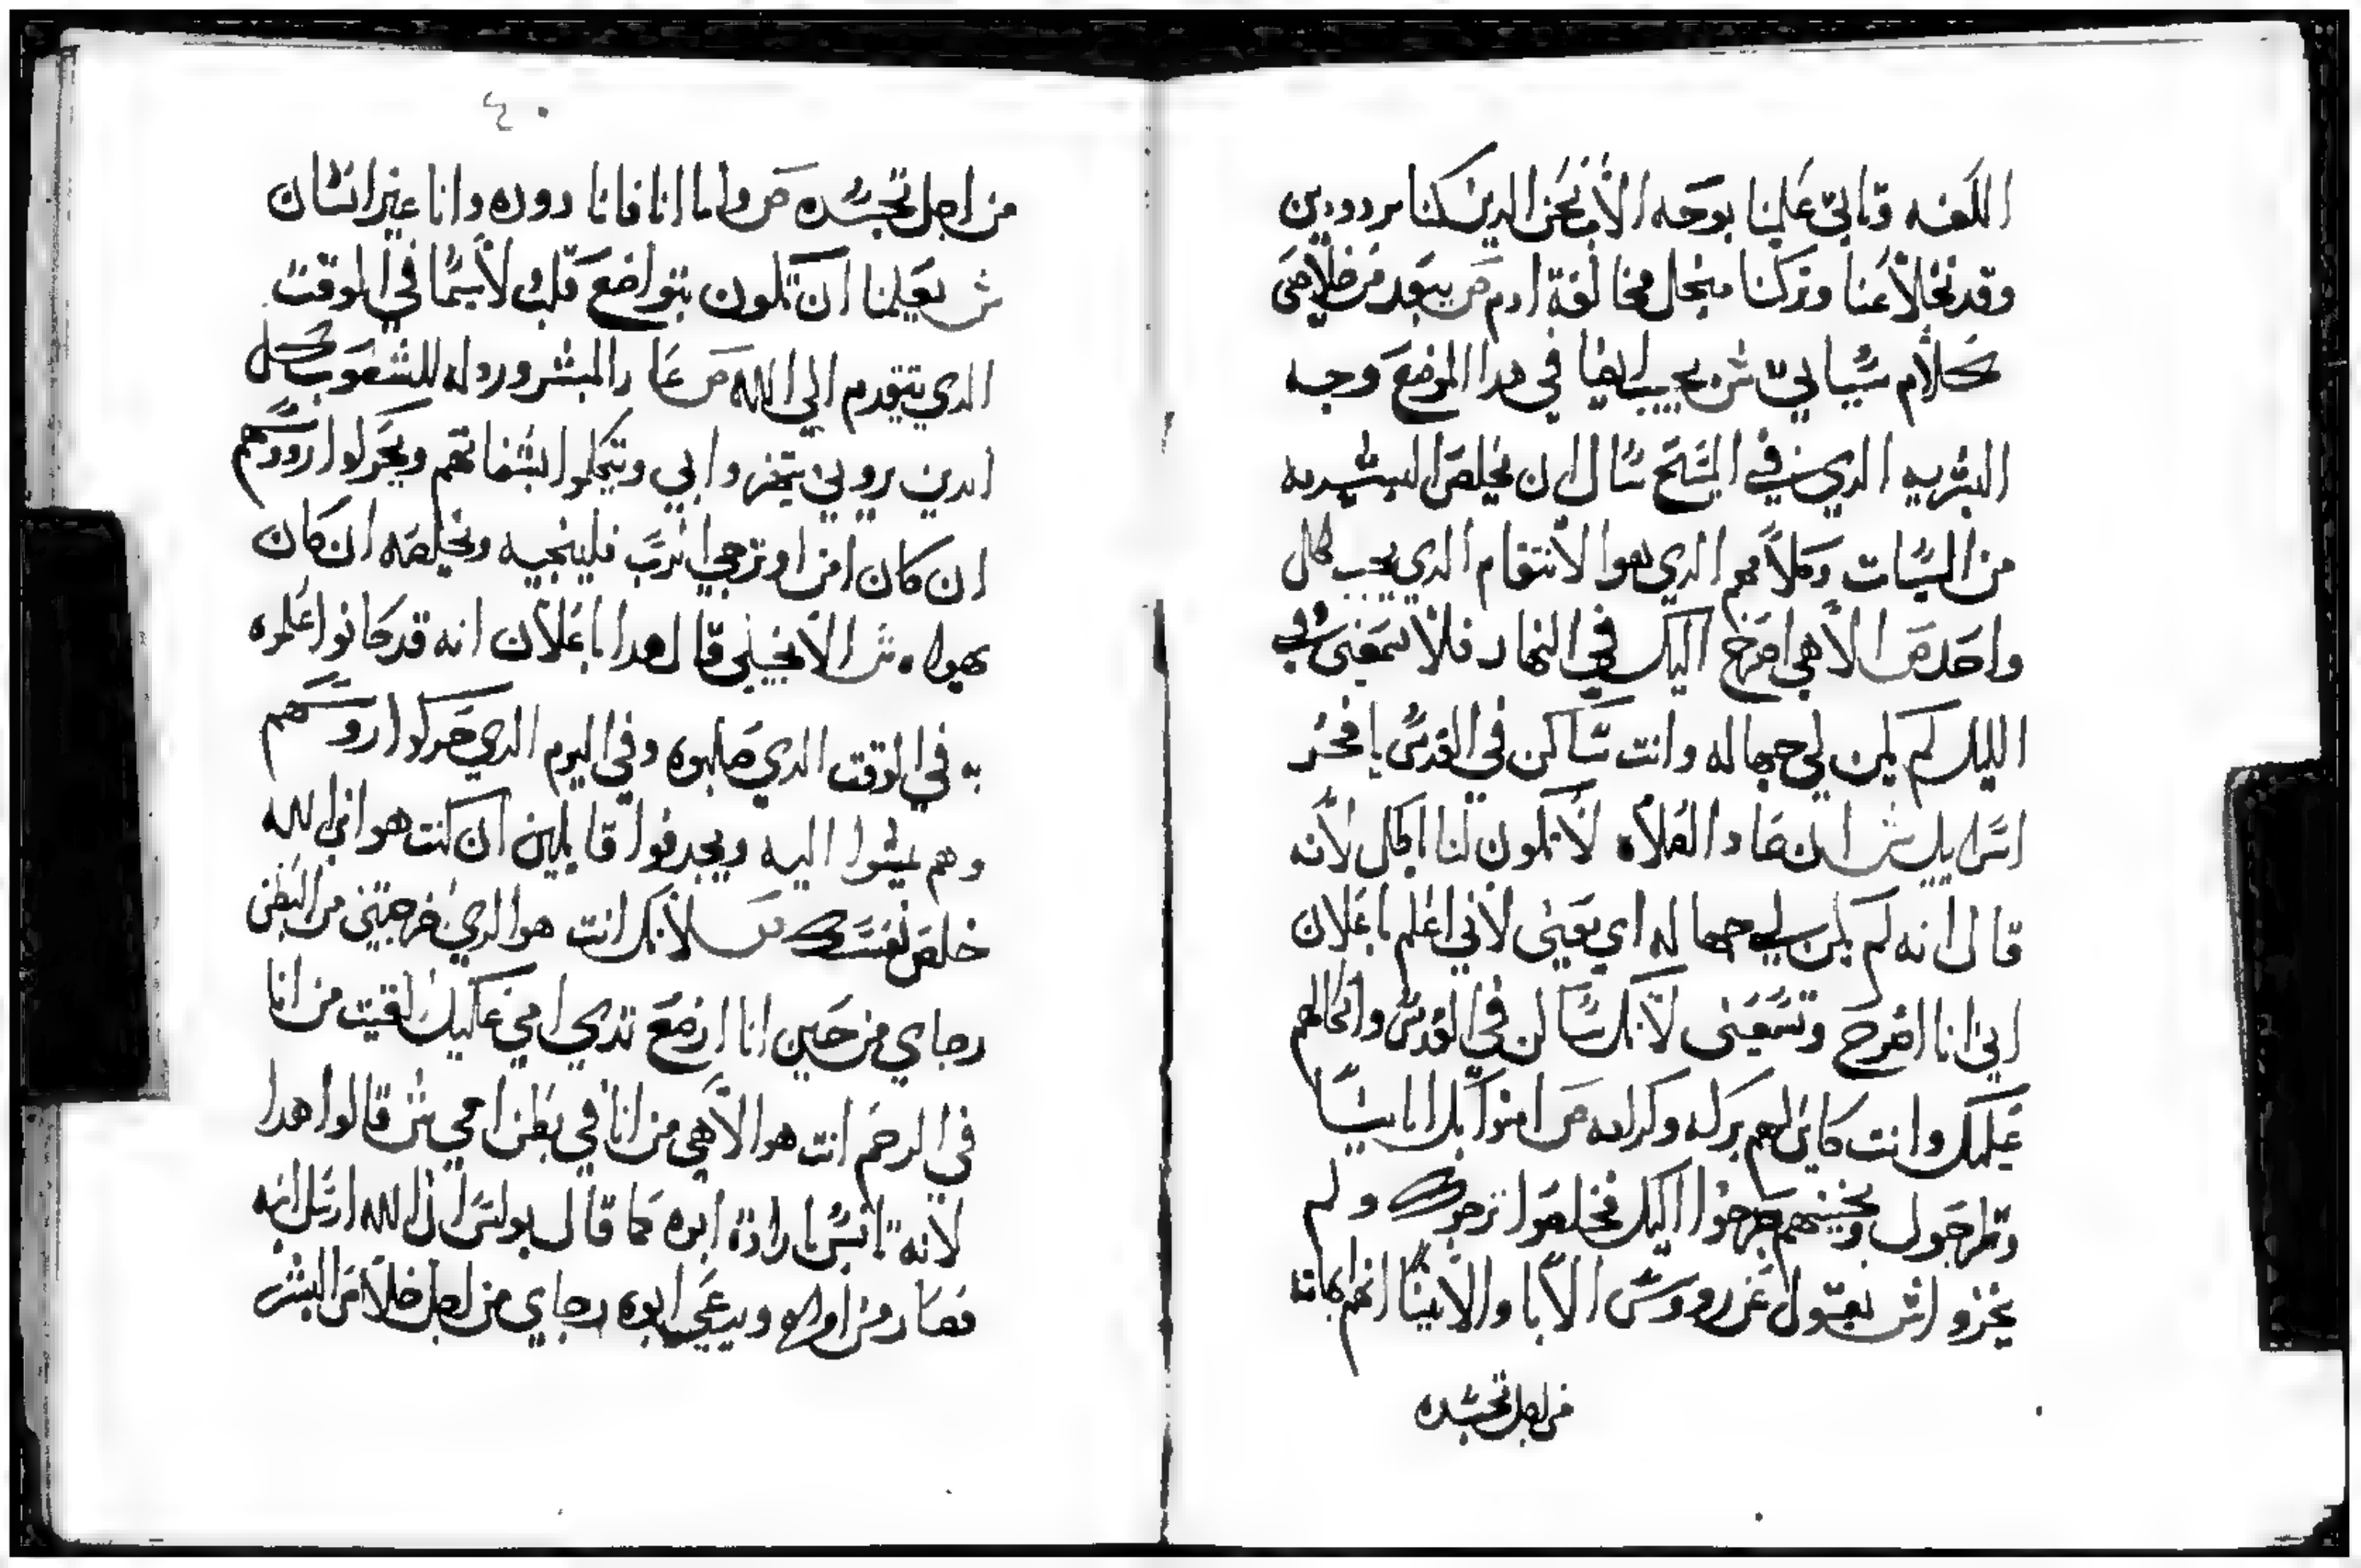 اللعنه وتاتي علينا بوجه الاب نحن الدين كنا مردودين
وقد تخلا عنا وتركنا من اجل مخالفة ادم ص يبعد من خلاصى
كلام سيياتي ش يجيب ايضا في هدا الموضع وجه
البشريه الدي في المسيح سال ان يخلص البشريه
من السيات وكلامهم الدي هوا الانتقام الدي يجب لكل
واحد ص الاهي اصرخ اليك في النهار فلا تسمعنى وفي
الليل لم يكن لي جهاله وانت ساكن في القدس يا فخر
اسراييل ش ان صاد الصلاه لا تكون لنا اكمال لانه
قال انه لم يكن لي جهاله اي يعنى لاني اعلم باعلان
اني انا اصرخ وتسمعنى لانك ساكن في القدس واتكالهم
عليك وانت كاين لهم بركه وكرامه ص امنوا بك ابايينا
وترجوك وتخيبهم صرخوا اليك فخلصوا ترجوك ولم
يخزوا ش يقول عن رووس الابا والانبيا انهم كانوا
من اجل تجسده
٤٠
من اجل تجسده ص واما انا فانا دوده وانا غير انسان
ش يعلمنا ان نكون بتواضع قلب لاسيما في الوقت
الدي يتقدم الي الله ص عار البشر وردله للشعوب كل
الدين يروني يتمخزوا بي وتكلموا بشفاتهم ويحركوا رووسهم
ان كان امن او ترجي الرب فلينجيه ويخلصه ان كان
يهواه ش الانجيلي قال هدا باعلان انه قد كانوا علموه
به في الوقت الدي صلبوه وفي اليوم الدي حركوا روسهم
وهم يمشوا اليه ويجدفوا قايلين ان كنت هو ابن الله
خلص نفسك ص لانك انت هوا الدي خرجتني من البطن
رجاي من حين انا ارضع تدي امي عاليك لقيت من انا
في الرحم انت هوا الاهي من انا في بطن امي ش قالوا هدا
لانه تانس بارادة ابوه كما قال بولس ان الله ارسل ابنه
فصار من امراه ويدعي ابوه رجاي من اجل خلاص البشر